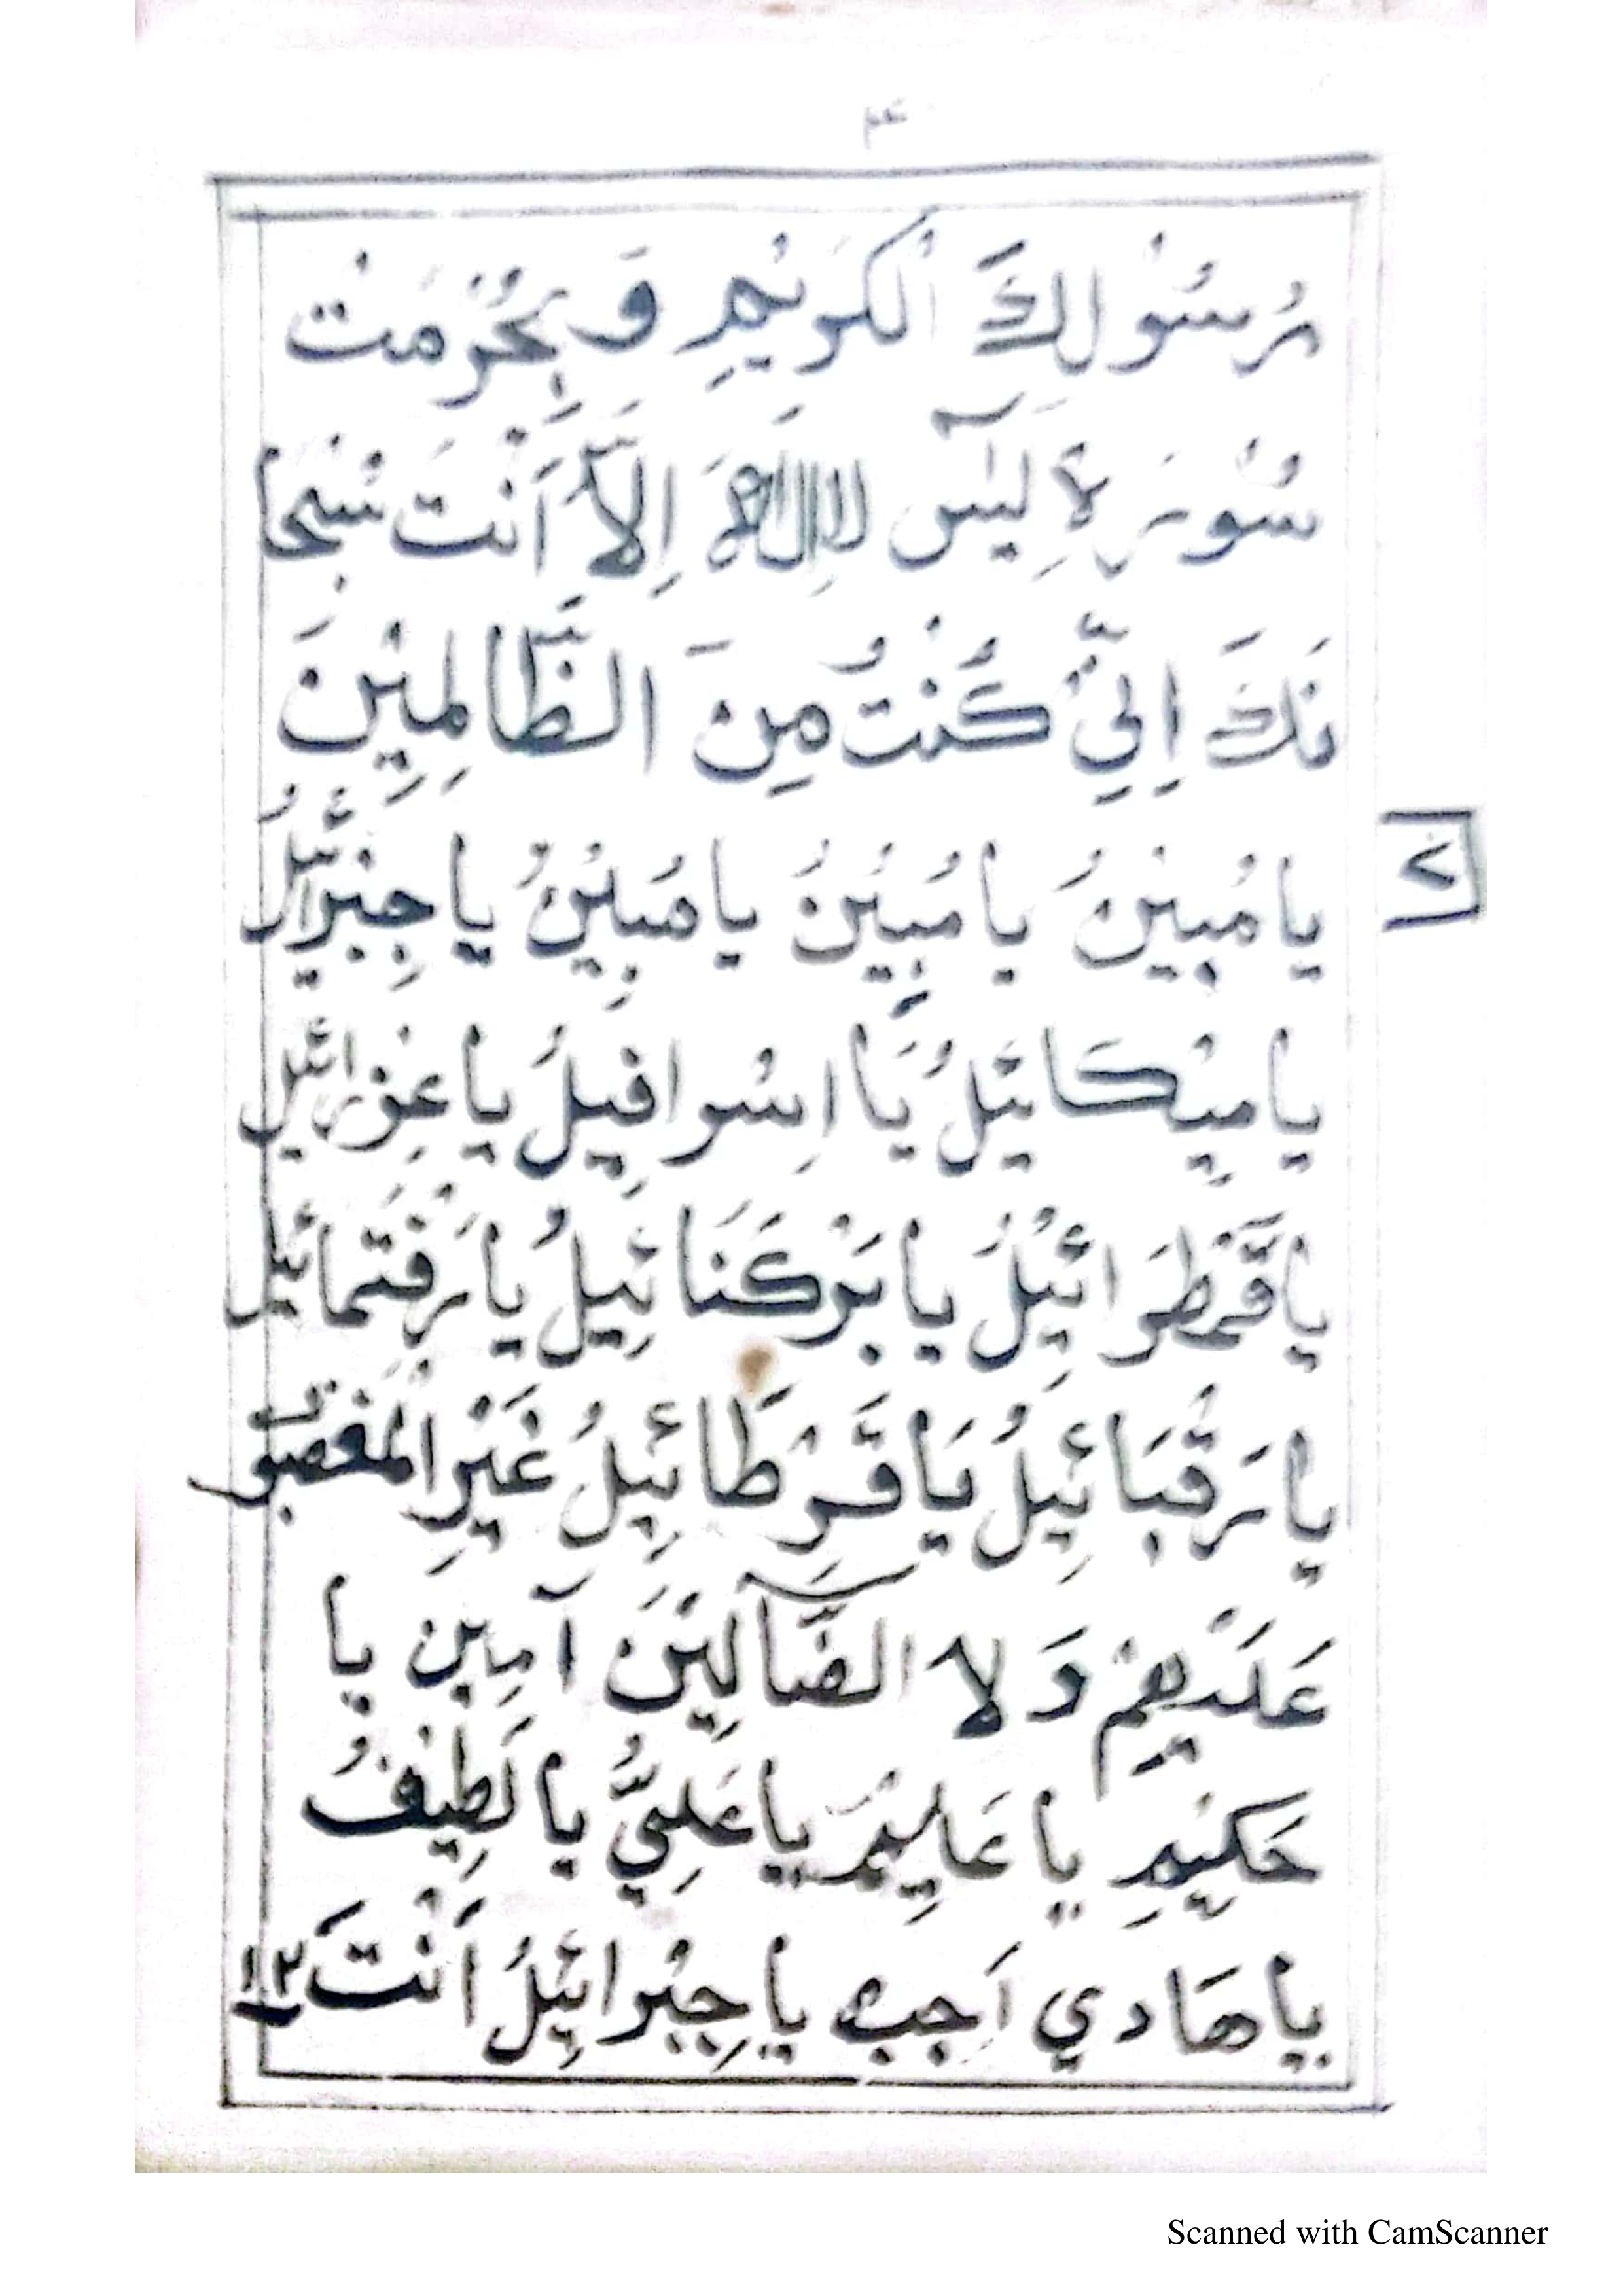 ۴
رَسُوْلِكَ الْكَرِيْمِ وَ بِحُرْمَتْ
سُوْرَةِ يٰسٓ لَااِلٰهَ اِلَّا اَنْتَ سُبْحَا
نَكَ اِنِّيْ كُنْتُ مِنَ الظَّالِمِيْنَ
٢
يا مُبِيْنُ يا مُبِيْنُ يا مُبِيْنُ يا جِبْرَائِيْلُ
يا مِيْكَائِيْلُ يَا اِسْرافِيلُ يا عِزْرائِيْل
يا قَمْطَرَائِيْلُ يا بَرْكَنَائِيلُ يا رَفْتَمائِيْل
يا رَقْبَائِيلُ يَا قَرْطَائِيلُ غَيْرِ الْمَغْضُوْ
عَلَيْهِمْ وَلا الضَّآلِيْنَ آمِين يا
حَكِيْمِ يا عَلِيْمُ يا عَلِيُّ يا لَطِيْفُ
يا هَادي اَجب يا جِبْرائِيْلُ اَنْتَ ١٢
Scanned with CamScanner